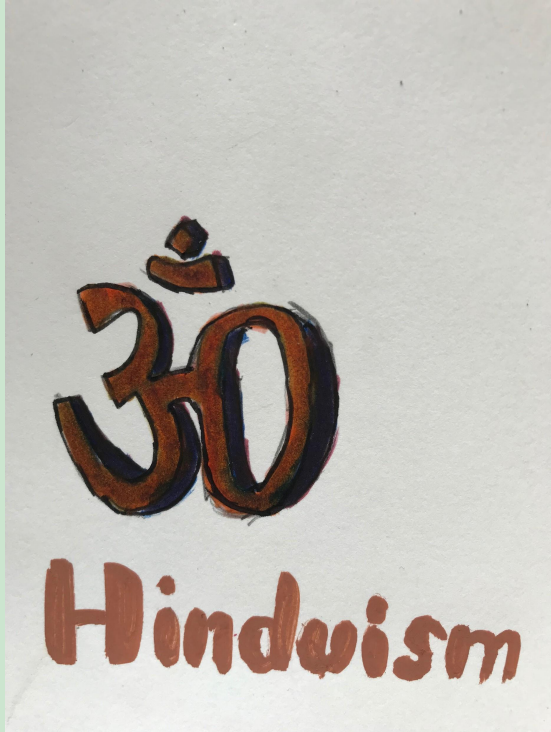 ॐ
Hinduism